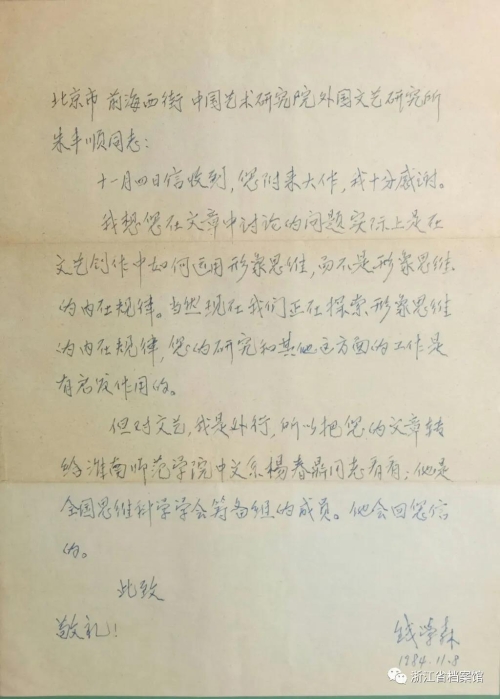 北京市前海西街中国艺术研究院外国文艺研究所
朱丰顺同志：
十一月四日信收到，您附来大作，我十分感谢。
我想您在文章中讨论的问题实际上是在
文艺创作中如何运用形象思维，而不是形象思维
的内在规律。当然现在我们正在探索形象思维
的内在规律，您的研究和其他这方面的工作是
有启发作用的。
但对文艺，我是外行，所以把您的文章转
给淮南师范学院中文系楊春鼎同志看看；他是
全国思维科学学会筹备组的成员。他会回您信
的。
此致
敬礼！
钱学森
1984.11.8
浙江省档案馆